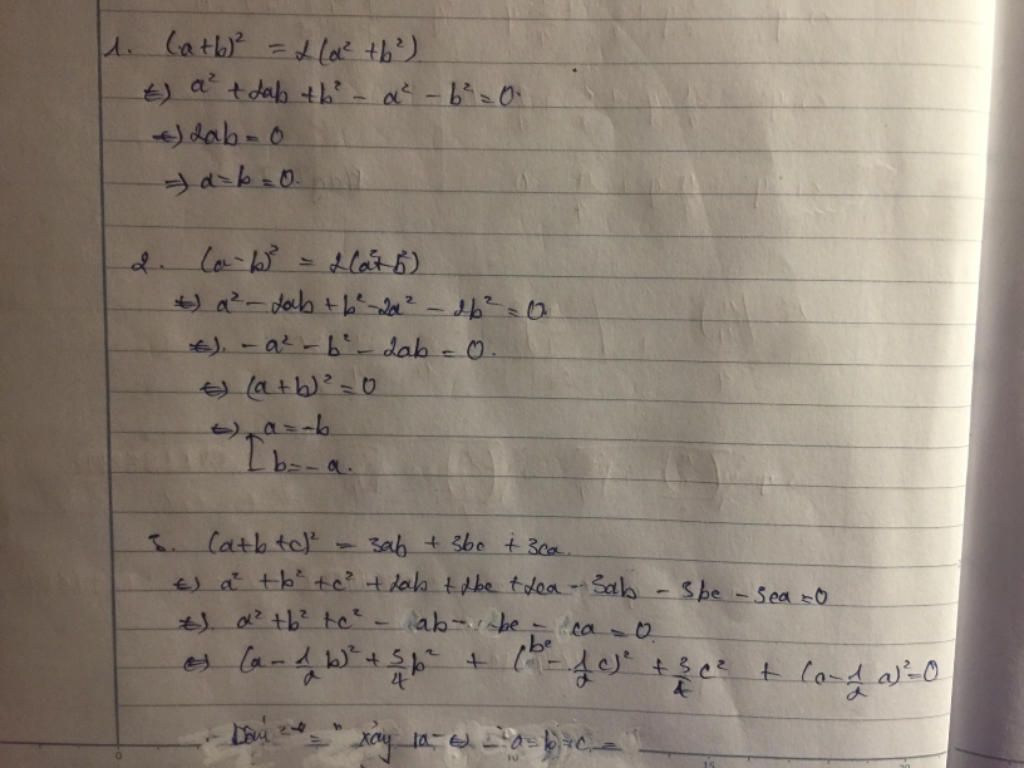 1. (a+b)² = 2(a² + b²)
⇔) a² + 2ab + b² - a² - b² = 0.
⇔) 2ab = 0
⇒) a = b = 0.
2. (a - b)² = 2(a² + b²)
⇔) a² - 2ab + b² - 2a² - 2b² = 0
⇔). - a² - b² - 2ab = 0.
⇔) (a + b)² = 0
⇔) [ a = -b
b = - a.
3. (a+b+c)² = 3ab + 3bc + 3ca.
⇔) a² + b² + c² + 2ab + 2bc + 2ca - 3ab - 3bc - 3ca = 0
⇔). a² + b² + c² - ab - bc - ca = 0.
⇔) (a - 1/2 b)² + 3/4 b² + (b - 1/2 c)² + 3/4 c² + (a - 1/2 a)² = 0
Dấu "=" xảy ra ⇔ a = b = c =